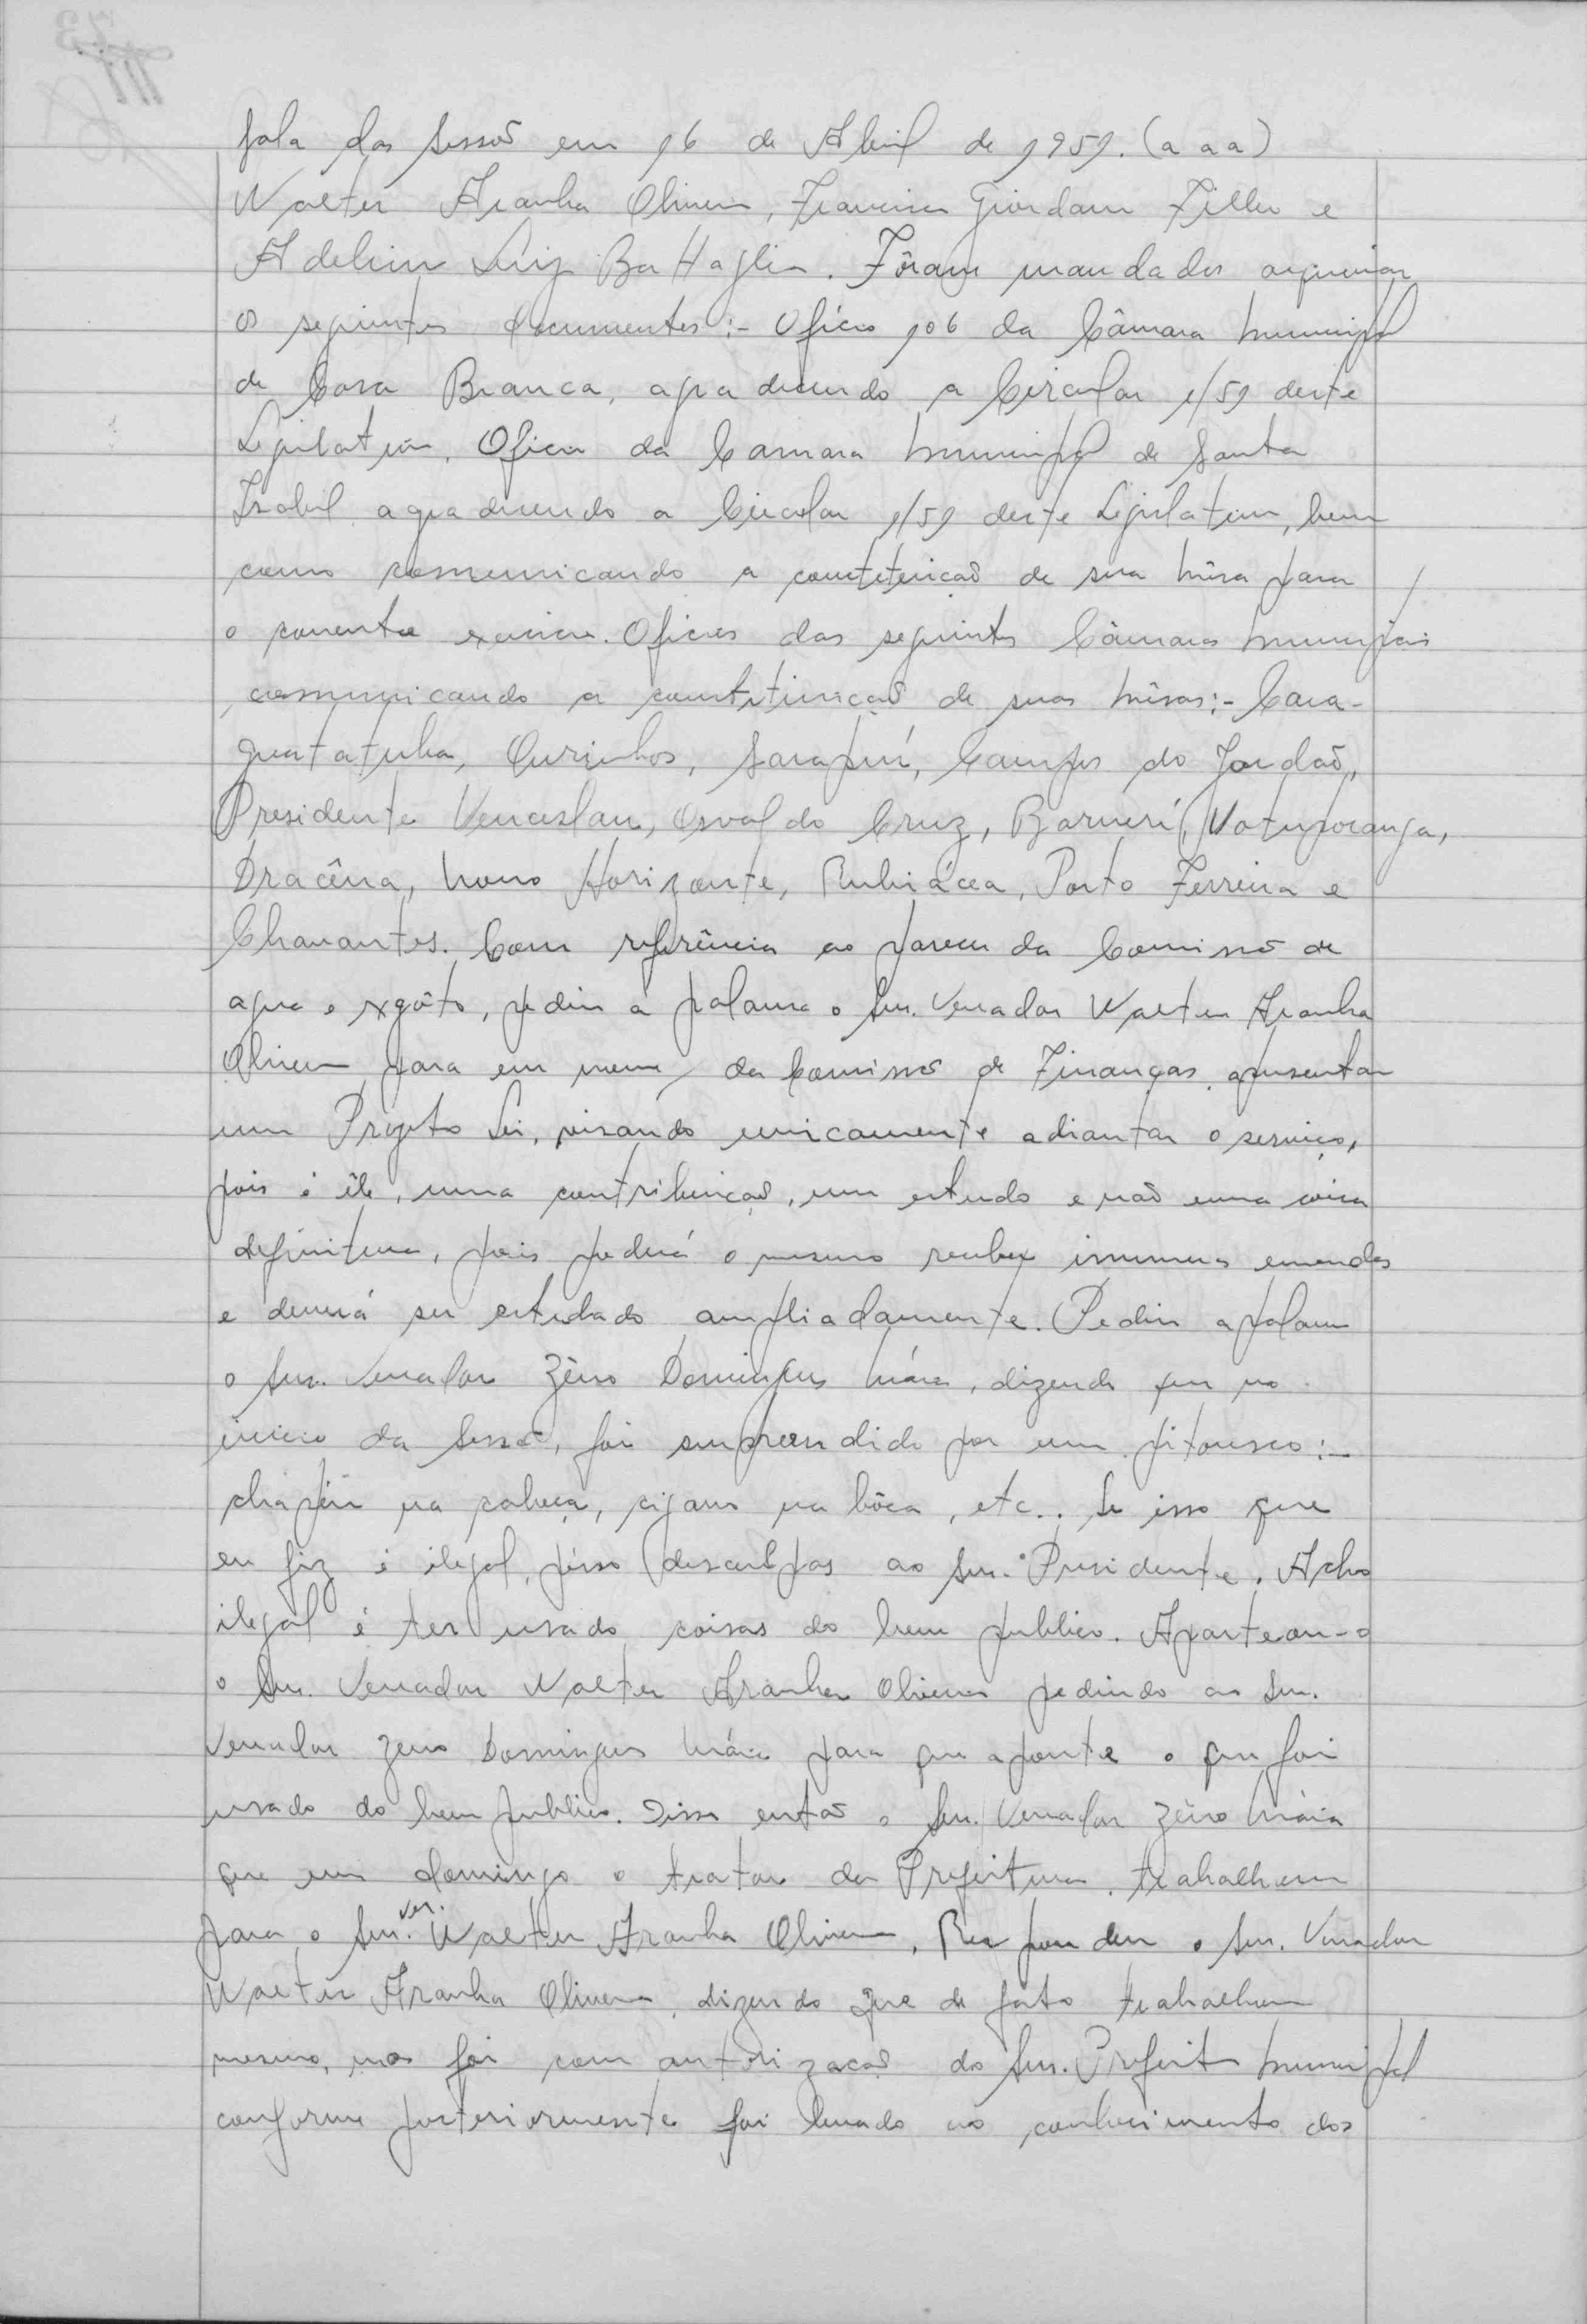 Sala das Sessões em 16 de Abril de 1959. (a a a)
Walter Aranha Oliveira, Francisco Giordano Filho e
Adelino Luiz Battaglia. Fôram mandados arquivar
os seguintes documentos:- Ofício 106 da Câmara Municipal
de Casa Branca, agradecendo a Circular 1/59 deste
Legislativo, Ofício da Camara Municipal de Santa
Izabel agradecendo a Circular 1/59 deste Legislativo, bem
como comunicando a constituição de sua Mêsa para
o corrente exercicio. Ofícios das seguintes Câmaras Municipais
comunicando a constituição de suas Mêsas:- Cara-
guatatuba, Ourinhos, Sarapuí, Campos do Jordão,
Presidente Venceslau, Osvaldo Cruz, Barueri, Votuporanga,
Dracêna, Novo Horizonte, Rubiácea, Porto Ferreira e
Chavantes. Com referência ao parecer da Comissão de
agua e exgôto, pediu a palavra o Snr. Vereador Walter Aranha
Oliveira para em nome da Comissão de Finanças apresentar
um Projeto Lei, visando unicamente adiantar o serviço,
pois é êle, uma contribuição, um estudo e não uma coisa
definitiva, pois poderá o mesmo receber inumeras emendas
e deverá ser estudado ampliadamente. Pediu a palavra
o Snr. Vereador Zêno Domingues Máia, dizendo que no
inicio da Sessão, foi surpreendido por um pitoresco:-
chapéu na cabeça, cigarro na bôca, etc.. Se isso que
eu fiz é ilegal, pésso desculpas ao Snr. Presidente. Acho
ilegal é ter usado coisas do bem publico. Aparteou-o
o Snr. Vereador Walter Aranha Oliveira pedindo ao Snr.
Vereador Zeno Domingues Máia para que aponte o que foi
usado do bem publico. Disse então o Snr. Vereador Zêno Máia
que um domingo o trator da Prefeitura, trabalhou
para o Snr. Ver. Walter Aranha Oliveira. Respondeu o Snr. Vereador
Walter Aranha Oliveira, dizendo que de fato trabalhou
mesmo, mas foi com autorização do Snr. Prefeito Municipal
conforme posteriormente foi levado ao conhecimento dos